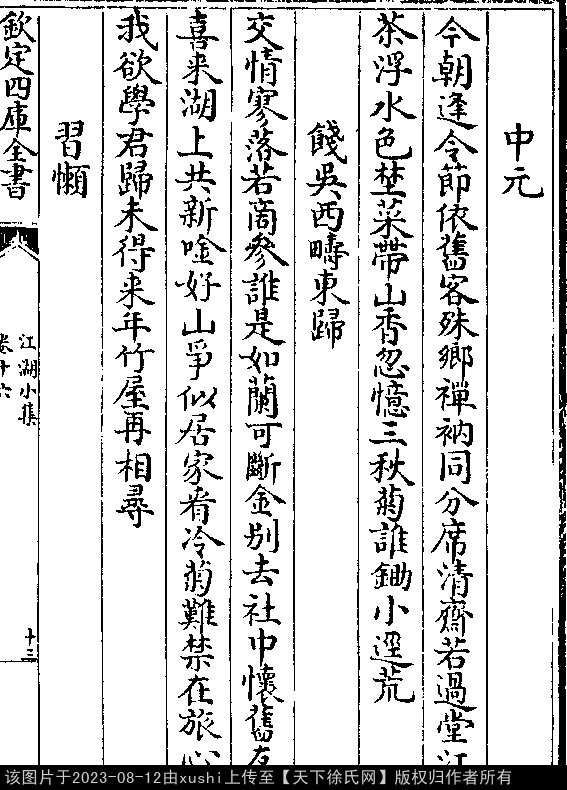 中元
今朝逢令節依舊客殊鄉禪衲同分席清齋若過堂江
茶浮水色埜菜帶山香忽憶三秋菊誰鋤小逕荒
餞吳西疇東歸
交情寥落若商參誰是如蘭可斷金別去社中懷舊友
喜来湖上共新唫好山爭似居家看冷菊難禁在旅心
我欲學君歸未得来年竹屋再相尋
習懶
欽定四庫全書
江湖小集
卷十六
十三
该图片于2023-08-12由xushi上传至【天下徐氏网】版权归作者所有